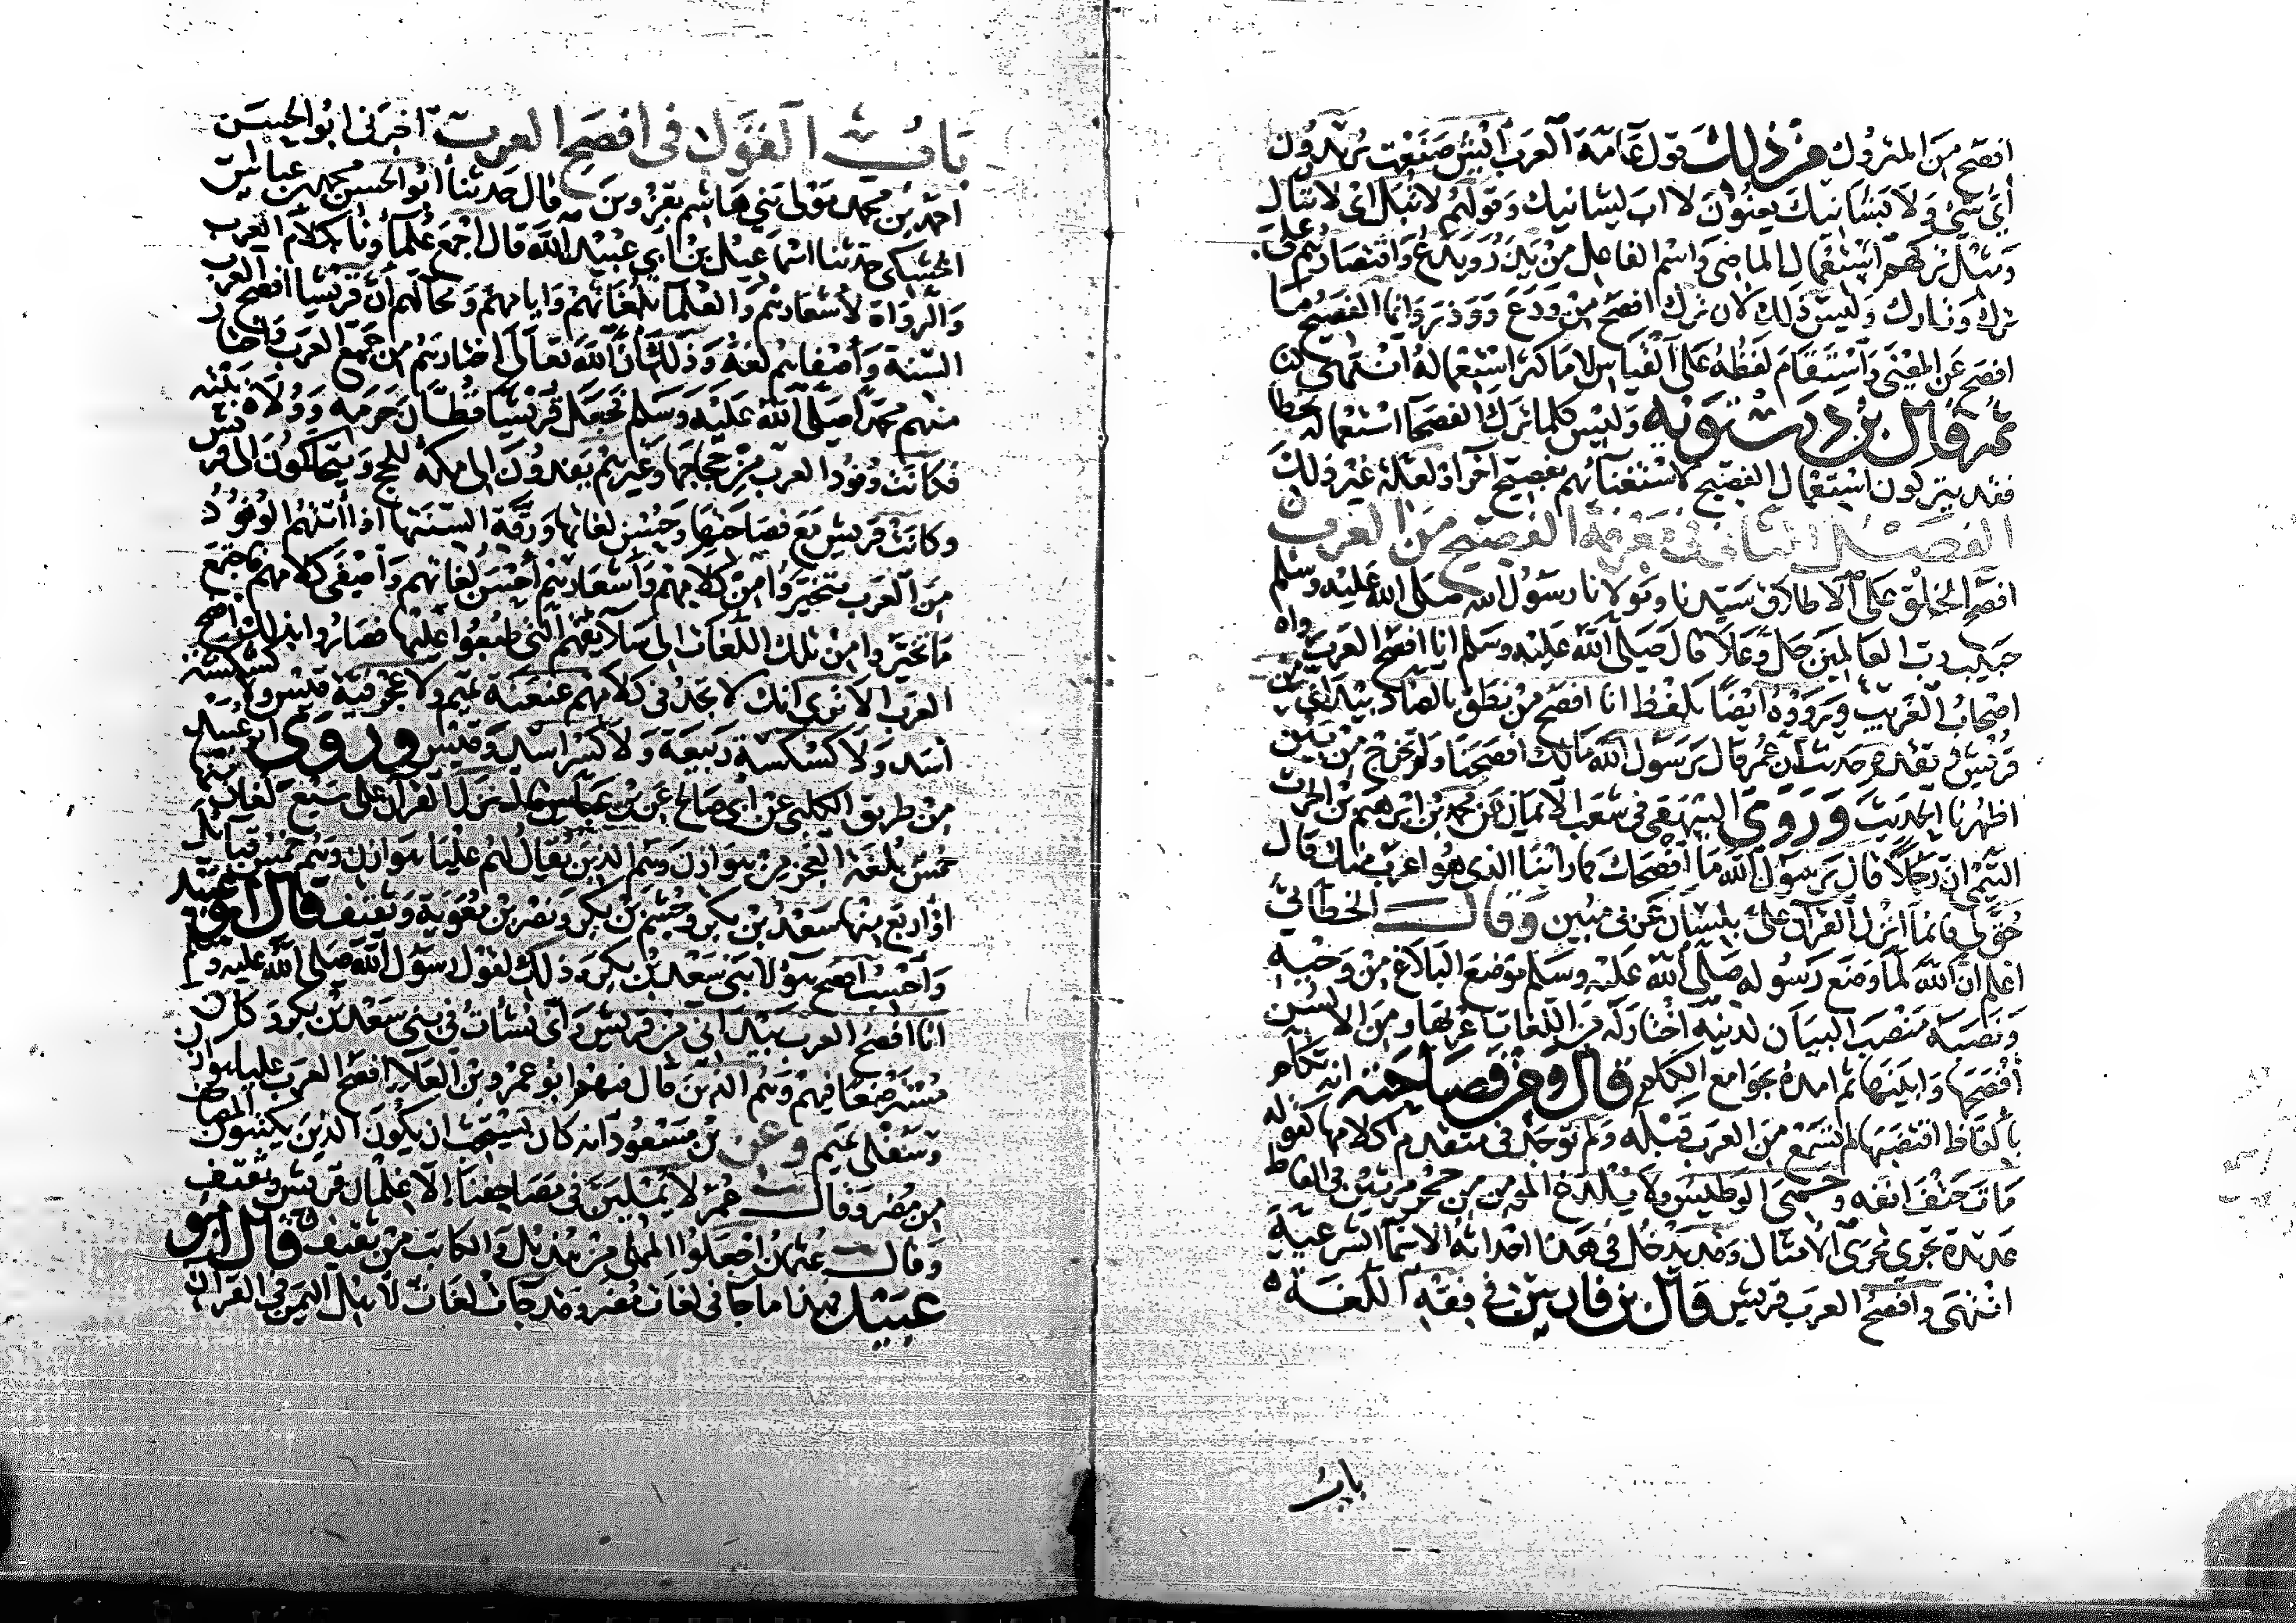 افصح من المتروك فمن ذلك قول عامة العرب ايش صنعت يريدون
اي شيء ولا بشانيك يعنون لا اب لشانيك وقولهم لا تبل اي لا تبال
ومثل تركهم استعمال الماضي واسم الفاعل من يذر ويدع واقتصارهم على
ترك وتارك وليس ذلك لان ترك افصح من ودع ووذر وانما الفصيح ما
افصح عن المعنى واستقام لفظه على القياس لا ما كثر استعماله انتهى
ثم قال بن درستويه وليس كلما ترك الفصحا استعماله بخطا
فقد يتركون استعمال الفصيح لاستغنائهم بفصيح آخر او لعلة غير ذلك
الفصل الثاني في معرفة الفصيح من العرب
افصح الخلق على الاطلاق سيدنا ومولانا رسول الله صلى الله عليه وسلم
حبيب رب العالمين جل وعلا قال صلى الله عليه وسلم انا افصح العرب رواه
اصحاب الغريب ورووه ايضا بلفظ انا افصح من نطق بالضاد بيد اني من
قريش وتقدم حديث ان عمر قال يرسول الله مالك افصحنا ولم تخرج من بين
اظهرنا الحديث وروى البيهقي في شعب الايمان عن محمد بن ابرهيم بن الحرث
التيمي ان رجلا قال يرسول الله ما افصحك فما راينا الذي هو اعرب منك قال
حق لي فانما انزل القرآن علي بلسان عربي مبين وقال الخطابي
اعلم ان الله لما وضع رسوله صلى الله عليه وسلم موضع البلاغ من وحيه
ونصبه منصب البيان لدينه اختار له من اللغات اعربها ومن الالسن
افصحها وابينها ثم امده بجوامع الكلم قال ومن فصاحته انه تكلم
بالفاظ اقتضبها لم تسمع من العرب قبله ولم توجد في متقدم كلامها كقوله
مات حتف انفه وحمي الوطيس ولا يلدغ المومن من جحر مرتين في الفاظ
عديدة تجري مجرى الامثال وقد يدخل في هذا احداثه الاسما الشرعية
انتهى وافصح العرب قريش قال بن فارس في فقه اللغة
باب
باب القول في افصح العرب اخبرني ابو الحسين
احمد بن محمد مولى بني هاشم بقزوين قال حدثنا ابو الحسن محمد بن عباس
الخشكي حدثنا اسماعيل بن ابي عبيد الله قال اجمع علماونا بكلام العرب
والرواة لاشعارهم والعلما بلغاتهم وايامهم ومحالهم ان قريشا افصح العرب
السنة واصفاهم لغة وذلك ان الله تعالى اختارهم من جميع العرب واختار
منهم محمدا صلى الله عليه وسلم فجعل قريشا قطان حرمه وولاة بيته
فكانت وفود العرب من حجاجها وغيرهم يفدون الى مكة للحج ويتحاكمون الى قريش
وكانت قريش مع فصاحتها وحسن لغاتها ورقة السنتها اذا اتتهم الوفود
من العرب تخيروا من كلامهم واشعارهم احسن لغاتهم واصفى كلامهم فاجتمع
ما تخيروا من تلك اللغات الى سلايقهم التي طبعوا عليها فصاروا بذلك افصح
العرب الا ترى انك لا تجد في كلامهم عنعنة تميم ولا عجرفية قيس ولا كشكشة
اسد ولا كسكسة ربيعة ولا كسر اسد وقيس وروى ابو عبيد
من طريق الكلبي عن ابي صالح عن بن عباس قال نزل القرآن على سبع لغات منها
خمس بلغة العجز من هوازن وهم الذين يقال لهم عليا هوازن وهم خمس قبايل
او اربع منها سعد بن بكر وجشم بن بكر ونصر بن معوية وثقيف قال ابو عبيد
واحسب افصح هولا بني سعد بن بكر وذلك لقول رسول الله صلى الله عليه وسلم
انا افصح العرب بيد اني من قريش واني نشات في بني سعد بن بكر وكان
مسترضعا فيهم وهم الذين قال فيهم ابو عمرو بن العلا افصح العرب عليا هوازن
وسفلى تميم وعن بن مسعود انه كان يستحب ان يكون الذين يكتبون المصاحف
من مضر وقال عمر لا يملين في مصاحفنا الا غلمان قريش وثقيف
وقال عثمان اجعلوا المملي من هذيل والكاتب من ثقيف قال ابو
عبيد فهذا ما جا في لغات مضر وقد جات لغات لاهل اليمن في القرآن